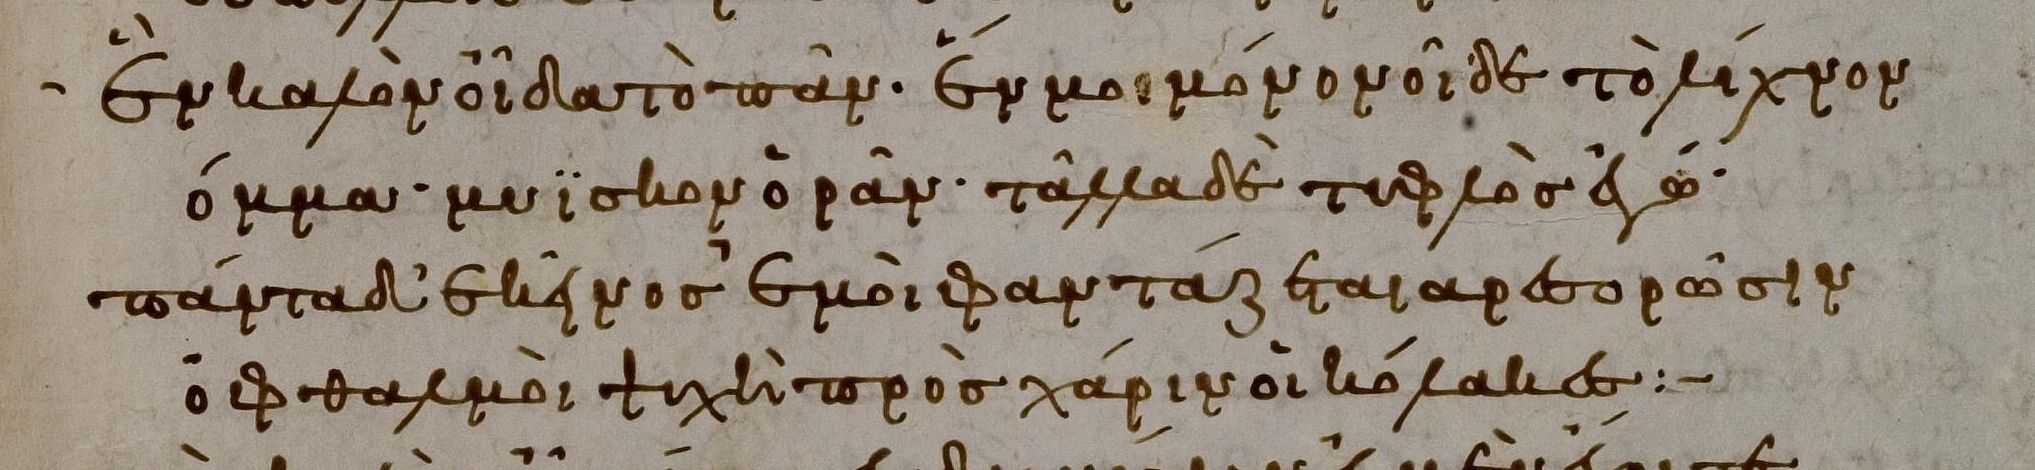 ἓν καλὸν οἶδα τὸ πᾶν· ἕν μοι μόνον οἶδε τὸ λίχνον
ὄμμα· μυΐσκον ὁρᾶν· τἆλλα δὲ τυφλὸς ἐγώ·
πάντα δ' ἐκεῖνος ἐμοὶ φαντάζεται ἆρ ἐσορῶσιν
ὀφθαλμοὶ ψυχῆ πρὸς χάριν οἱ κόλακες:~